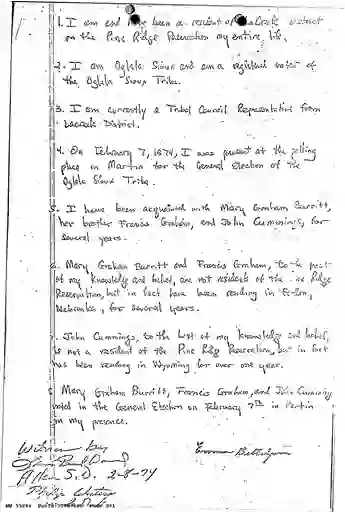 1. I am and been a resident of LaCreek District
on the Pine Ridge Reservation my entire life.
2. I am Oglala Sioux and am a registered voter of
the Oglala Sioux Tribe.
3. I am currently a Tribal Council Representative from
Lacreek District.
4. On February 7, 1974, I was present at the polling
place in Martin for the General Election of the
Oglala Sioux Tribe.
5. I have been acquainted with Mary Graham Burritt,
her brother Francis Graham, and John Cummings, for
several years.
6. Mary Graham Burritt and Francis Graham, to the best
of my knowledge and belief, are not residents of the Ridge
Reservation, but in fact have been residing in
Nebraska, for several years.
7. John Cummings, to the best of my knowledge and belief,
is not a resident of the Pine Ridge Reservation, but in fact
has been residing in Wyoming for over one year.
8. Mary Graham Burritt, Francis Graham, and John Cumming
voted in the General Election on February 7th in Martin
in my presence.
Witness by
Allen S.D. 2-8-74